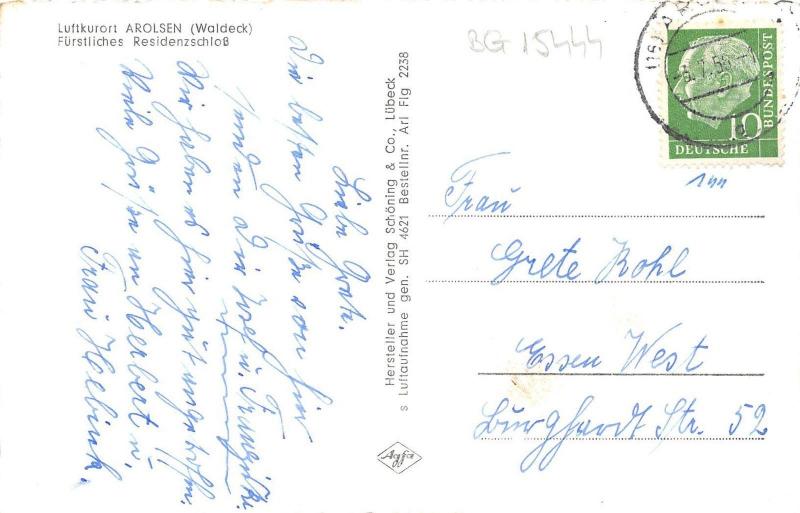 Luftkurort AROLSEN (Waldeck)
Fürstliches Residenzschloß
BG 15444
8.7.58
10
DEUTSCHE
BUNDESPOST
Liebe Grete.
Die besten Grüße von hier
senden Dir Josef u.
Wir haben es hier gut angetroffen.
Viele Grüße an Herbert u.
Frau
Hersteller und Verlag Schöning & Co., Lübeck
s Luftaufnahme gen. SH 4621 Bestellnr. Arl Flg 2238
Agfa
Frau
Grete Kohl
Essen West
Burghardt Str. 52